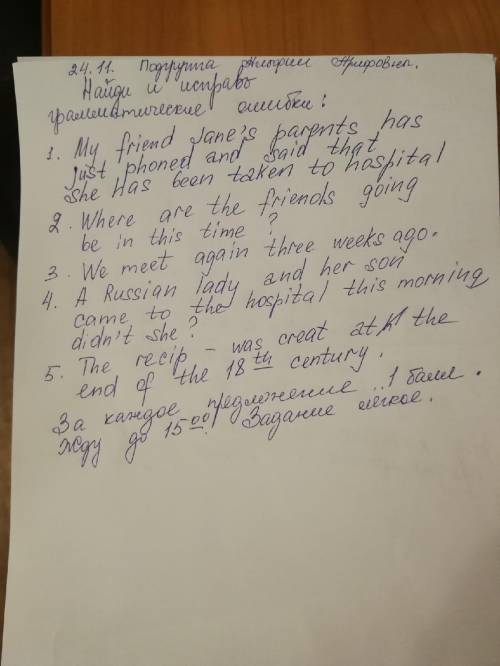 24.11. Подгруппа Альфии Арифовны.
Найди и исправь
грамматические ошибки:
1. My friend Jane's parents has
just phoned and said that
she has been taken to hospital
2. Where are the friends going
be in this time?
3. We meet again three weeks ago.
4. A Russian lady and her son
came to the hospital this morning
didn't she?
5. The recip - was creat at the
end of the 18th century.
За каждое предложение 1 балл.
Жду до 15 00. Задание легкое.